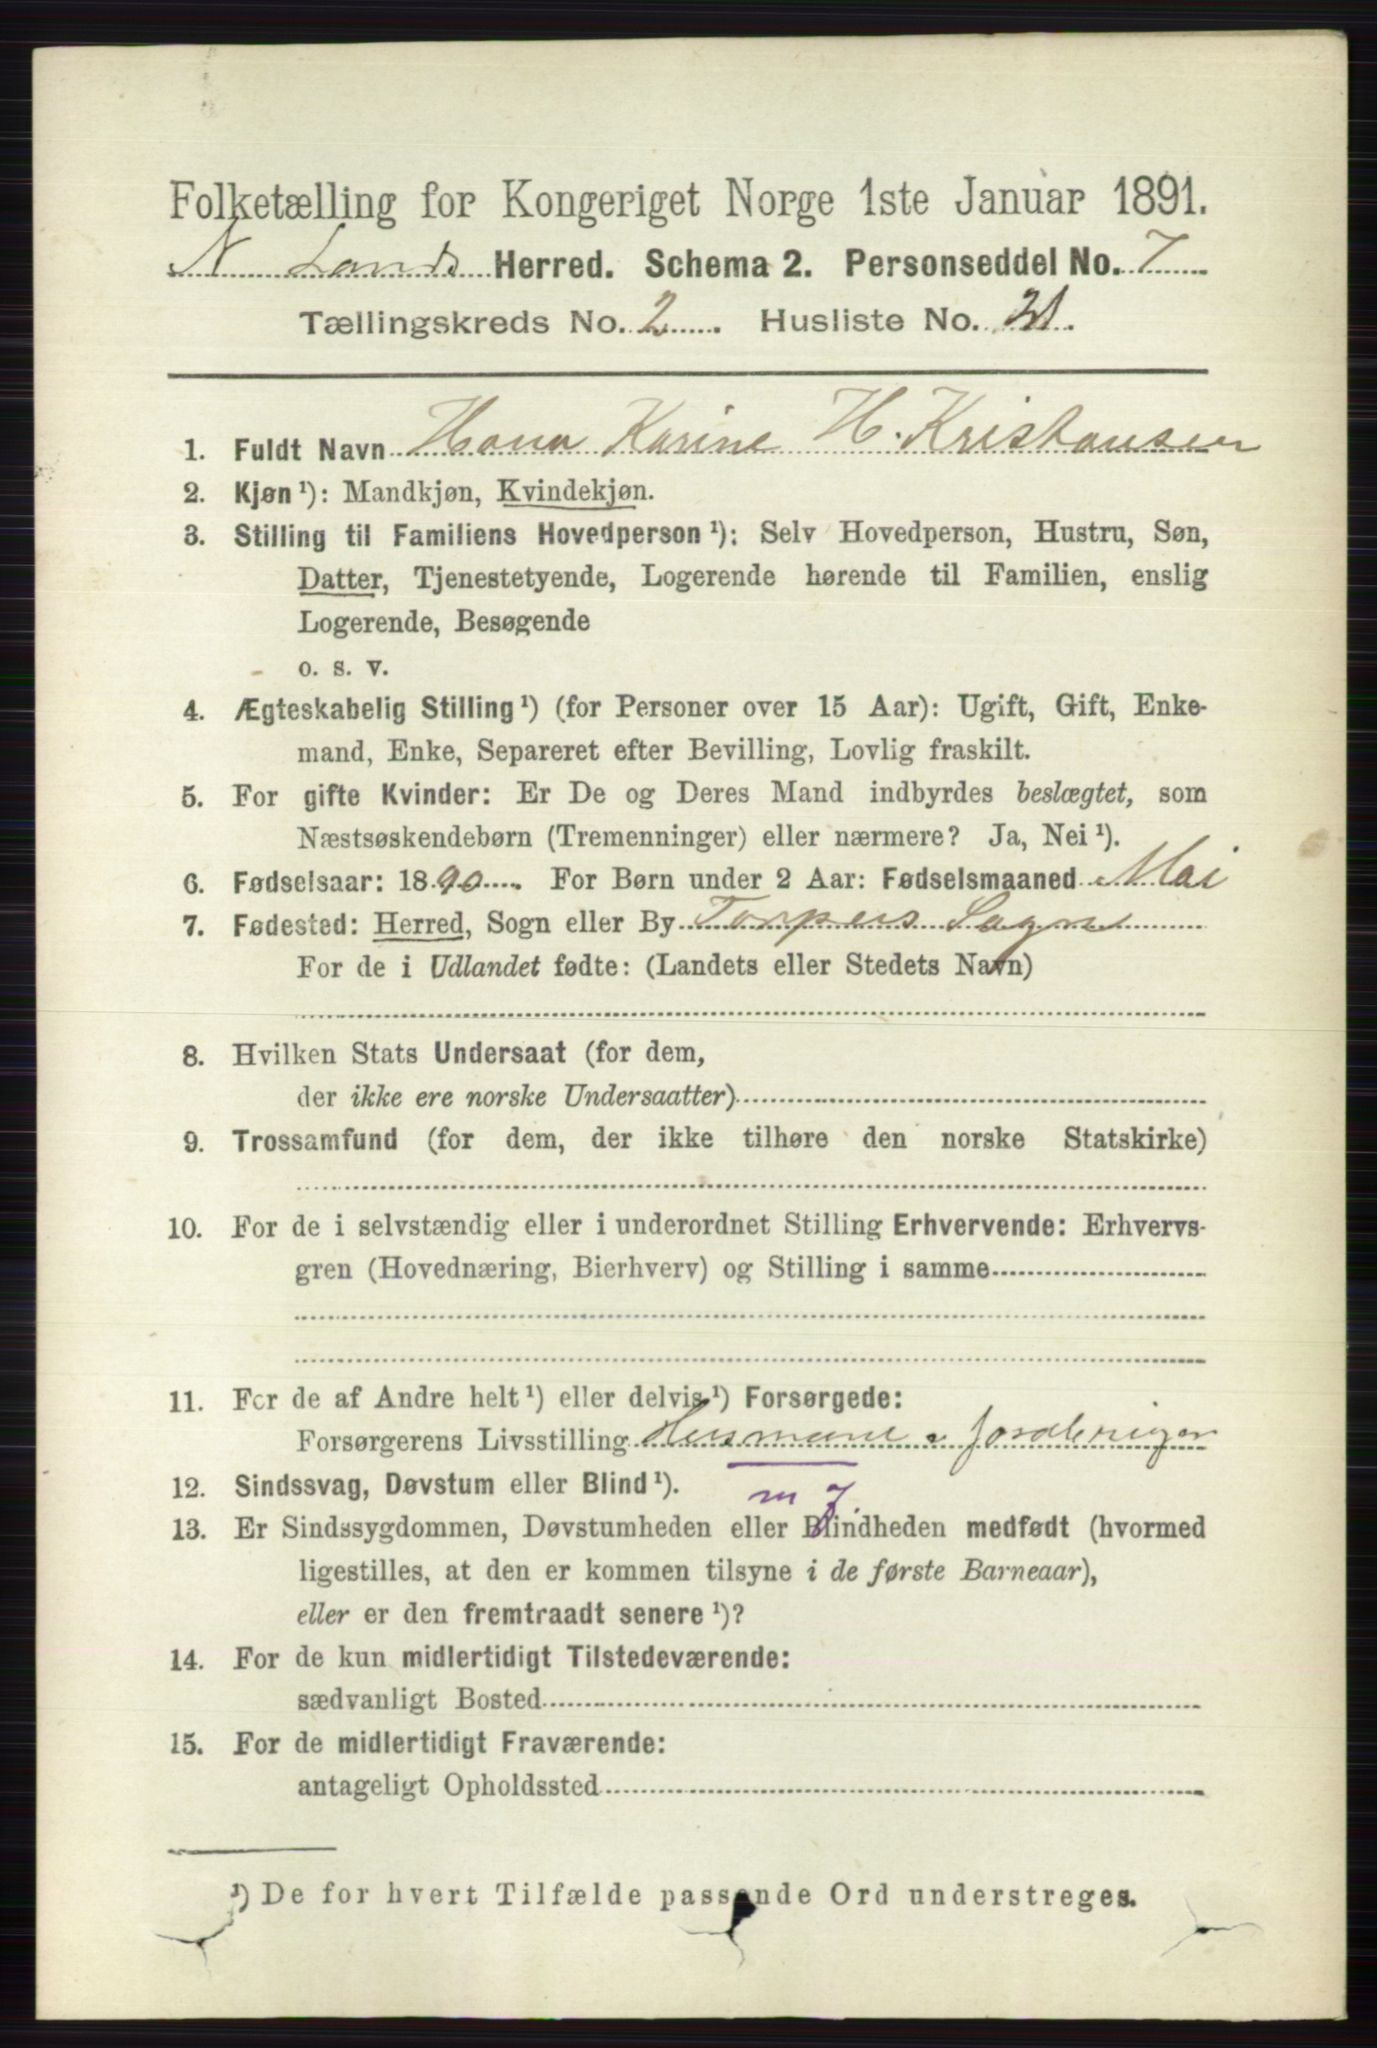 Folketælling for Kongeriget Norge 1ste Januar 1891.
N. Lands Herred. Schema 2. Personseddel No. 7
Tællingskreds No. 2. Husliste No. 31.
1. Fuldt Navn Hana Karine H. Kristansen
2. Kjøn ¹): Mandkjøn, Kvindekjøn.
3. Stilling til Familiens Hovedperson ¹): Selv Hovedperson, Hustru, Søn,
Datter, Tjenestetyende, Logerende hørende til Familien, enslig
Logerende, Besøgende
o. s. v.
4. Ægteskabelig Stilling ¹) (for Personer over 15 Aar): Ugift, Gift, Enke-
mand, Enke, Separeret efter Bevilling, Lovlig fraskilt.
5. For gifte Kvinder: Er De og Deres Mand indbyrdes beslægtet, som
Næstsøskendebørn (Tremenninger) eller nærmere? Ja, Nei ¹).
6. Fødselsaar: 1890. For Børn under 2 Aar: Fødselsmaaned Mai
7. Fødested: Herred, Sogn eller By Torpens Sogn
For de i Udlandet fødte: (Landets eller Stedets Navn)
8. Hvilken Stats Undersaat (for dem,
der ikke ere norske Undersaatter)
9. Trossamfund (for dem, der ikke tilhøre den norske Statskirke)
10. For de i selvstændig eller i underordnet Stilling Erhvervende: Erhvervs-
gren (Hovednæring, Bierhverv) og Stilling i samme
11. For de af Andre helt ¹) eller delvis ¹) Forsørgede:
Forsørgerens Livsstilling Husmand
12. Sindssvag, Døvstum eller Blind ¹).
m J.
13. Er Sindssygdommen, Døvstumheden eller Blindheden medfødt (hvormed
ligestilles, at den er kommen tilsyne i de første Barneaar),
eller er den fremtraadt senere ¹)?
14. For de kun midlertidigt Tilstedeværende:
sædvanligt Bosted
15. For de midlertidigt Fraværende:
antageligt Opholdssted
¹) De for hvert Tilfælde passende Ord understreges.